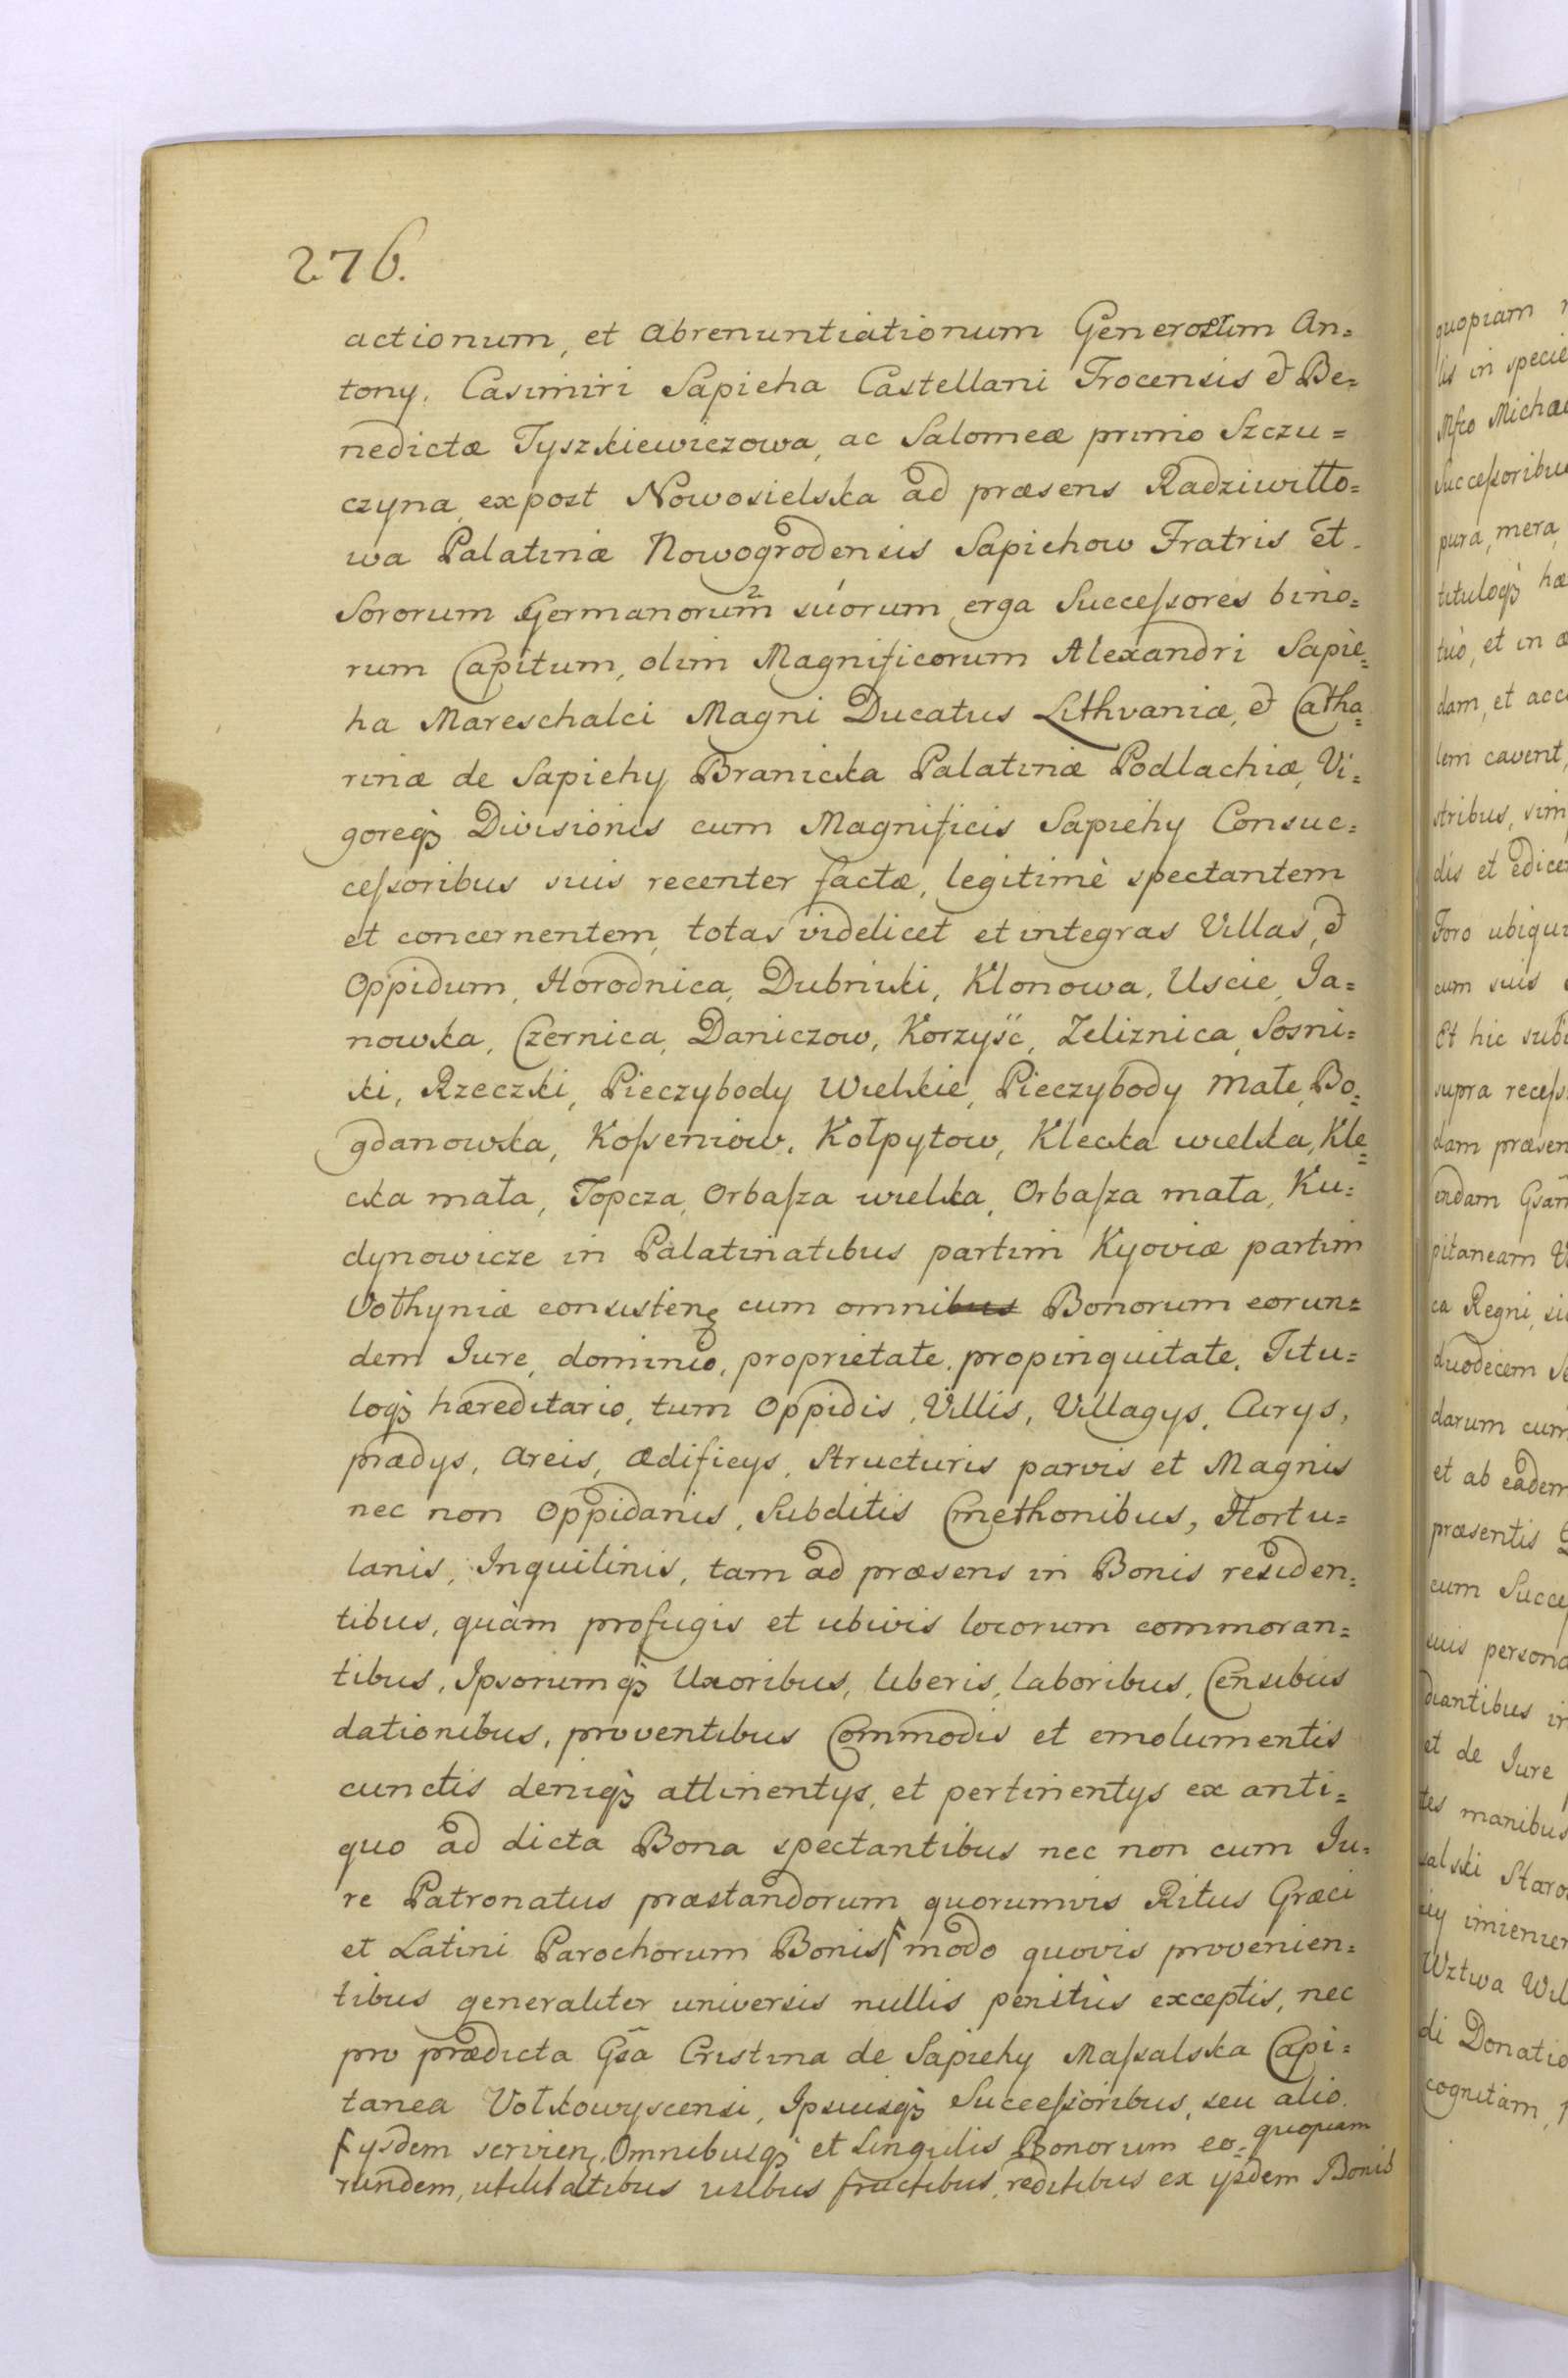 276.
actionum, et Abrenuntiationum Generosum An=
tony, Casimiri Sapieha Castellani Trocensis et Be=
nedictæ Tyszkiewiczowa, ac Salomeæ primo Szczu=
czyna, expost Nowosielska ad præsens Radziwiłło=
wa Palatinæ Nowogrodensis Sapiehow Fratris et
Sororum Germanorum suorum erga Succeſsores bino=
rum Capitum, olim Magnificorum Alexandri Sapie=
ha Mareschalci Magni Ducatus Lithvaniæ, et Catha=
rinæ de Sapiehy Branicka Palatinæ Podlachiæ, Vi=
goreqꝫ Divisionis cum Magnificis Sapiehy Consuc=
ceſsoribus suis recenter factæ, legitimè spectantem
et concernentem, totas videlicet et integras Villas, et
Oppidum, Horodnica, Dubniki, Klonowa, Uscie, Ja=
nowka, Czernica, Daniczow, Korzyść, Zeliznica, Sosni=
ki, Rzeczki, Pieczybody Wielkie, Pieczybody Małe, Bo=
gdanowka, Koſseniow, Kołpytow, Klecka wielka, Kle=
cka mała, Topcza, Orbaſza wielka, Orbaſza mała, Ku=
dynowicze in Palatinatibus partim Kyoviæ partim
Vołhyniæ consisten. cum omnibus Bonorum eorun=
dem Jure, dominio, proprietate, propinquitate, Titu=
loqꝫ hæreditario, tum Oppidis, Villis, Villagys, Curys,
prædys, Areis, Ædificys, Structuris parvis et Magnis
nec non Oppidanis, Subditis Cmethonibus, Hortu=
lanis, Inquilinis, tam ad præsens in Bonis residen=
tibus, quàm profugis et ubivis locorum commoran=
tibus, Ipsorumqꝫ Uxoribus, liberis, laboribus, Censibus
dationibus, proventibus Commodis et emolumentis
cunctis deniqꝫ attinentys, et pertinentys ex anti=
quo ad dicta Bona spectantibus nec non cum Ju=
re Patronatus præstandorum quorumvis Ritus Græci
et Latini Parochorum Bonis modo quovis provenien=
tibus generaliter universis nullis penitùs exceptis, nec
pro prædicta Gsa Cristina de Sapiehy Maſsalska Capi=
tanea Vołkowyscensi, Ipsiusqꝫ Succeſsoribus, seu alio
quopiam
ysdem servien. Omnibusqꝫ et Singulis Bonorum eo=
rundem, utilitatibus usibus fructibus, reditibus ex ysdem Bonis
quopiam
in specie
Mfco Michae
Succeſsoribu
pura, mera
tituloqꝫ hæ
tuò, et in
dam, et acc
lem cavent,
stribus, sim
dis et edice
Foro ubiqui
cum suis
Et hic sub
supra receſs
dam præsen
endam Gsam
pitaneam
ca Regni,
duodecem
darum cum
et ab eadem
præsentis
cum Succe
suis persona
diantibus
et de Jure
tes manibus
salski Staro
imienie
Wztwa Wil
di Donatio
cognitam,